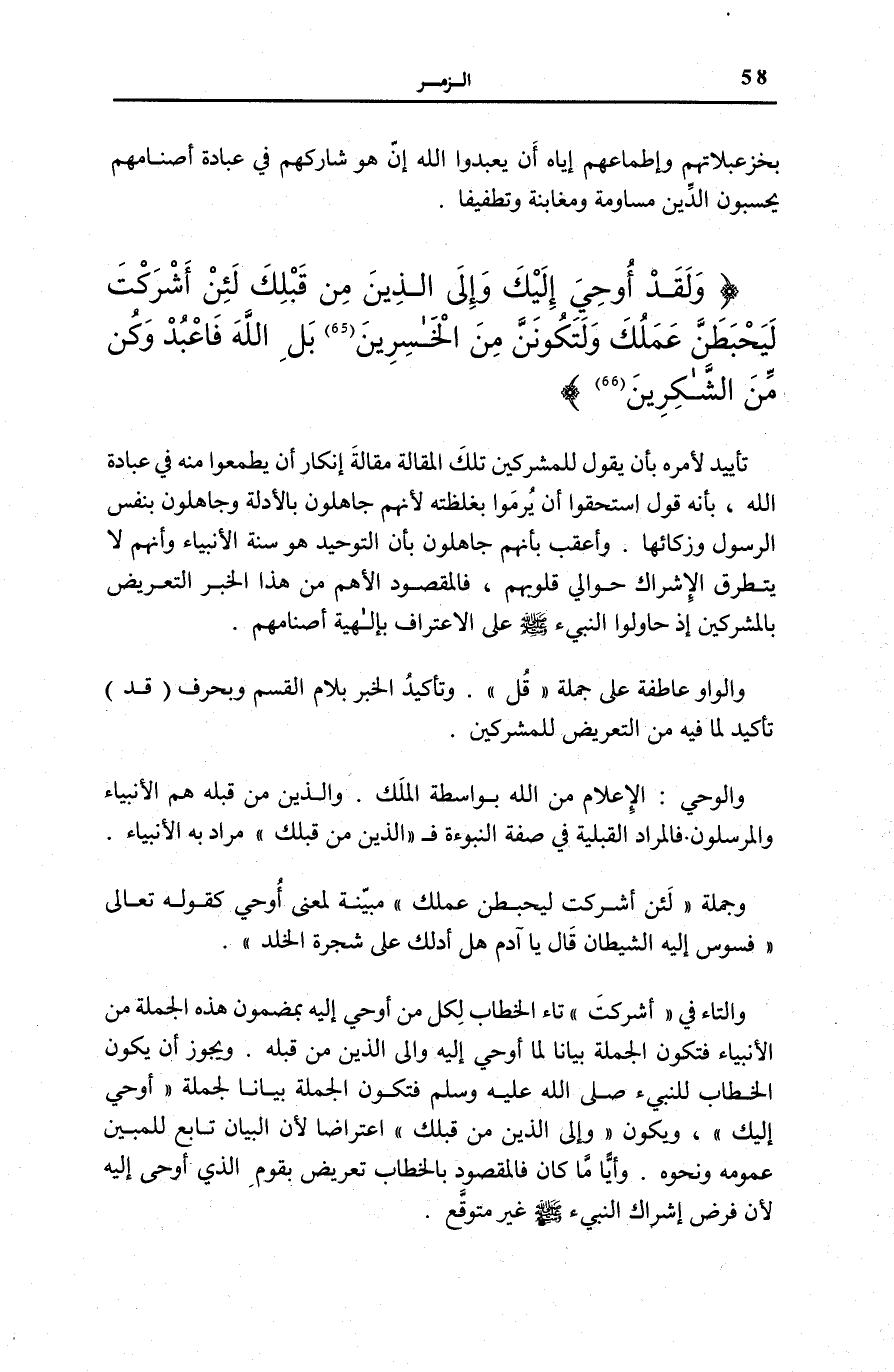 58
الـزمـر
بخزعبلاتهم وإطماعهم إياه أَن يعبدوا الله إنّ هو شاركهم في عبادة أصنـامهم
يحسبون الدِّين مساومة ومغابنة وتطفيفا .
﴿ وَلَقَـدْ أُوحِيَ إِلَيْكَ وَإِلَى الـذِينَ مِن قَبْلِكَ لَئِنْ أَشْرَكْتَ
لَيَحْبَطَنَّ عَمَلُكَ وَلَتَكُونَنَّ مِنَ الْخَٰـسِرِينَ(65) بَلِ اللَّهَ فَاعْبُدْ وَكُن
مِّنَ الشَّـٰكِرِينَ(66) ﴾
تأييد لأمره بأن يقول للمشركين تلكَ المقالة مقالةَ إنكار أن يطمعوا منه في عبادة
الله ، بأنه قول استحقوا أن يُرمَوا بغلظته لأنهم جاهلون بالأدلة وجاهلون بنفس
الرسول وزكائها . وأعقب بأنهم جاهلون بأن التوحيد هو سنة الأنبياء وأنهم لا
يتـطرق الإشراك حـوالي قلوبهم ، فالمقصـود الأهم من هذا الخبـر التعـريض
بالمشركين إذ حاولوا النبيء ﷺ على الاعتراف بإلـٰهية أصنامهم .
والواو عاطفة على جملة « قُل » . وتأكيدُ الخبر بلام القسم وبحرف ( قـد )
تأكيد لما فيه من التعريض للمشركين .
والوحي : الإعلام من الله بـواسطة الملَك . والـذين من قبله هم الأنبياء
والمرسلون.فالمراد القبلية في صفة النبوءة فـ «الذين من قبلك » مراد به الأنبياء .
وجملة « لَئن أشـركت ليحبـطن عملك » مبيّنـة لمعنى أُوحي كقـولـه تعـالى
« فسوس إليه الشيطان قَال يا آدم هل أدلك على شجرة الخلد » .
والتاء في « أشركتَ » تاء الخطاب لِكل من أوحي إليه بمضمون هذه الجملة من
الأنبياء فتكون الجملة بيانا لما أوحي إليه والى الذين من قبله . ويجوز أن يكون
الخـطاب للنبيء صـلى الله عليـه وسلم فتكـون الجملة بيـانـا لجملة « أوحي
إليك » ، ويكون « وإلى الذين من قبلك » اعتراضا لأن البيان تـابع للمبـين
عمومه ونحوه . وأيًّا مَّا كان فالمقصود بالخطاب تعريض بقومِ الذي أوحى إليه
لأن فرض إشراك النبيء ﷺ غير متوقَّع .